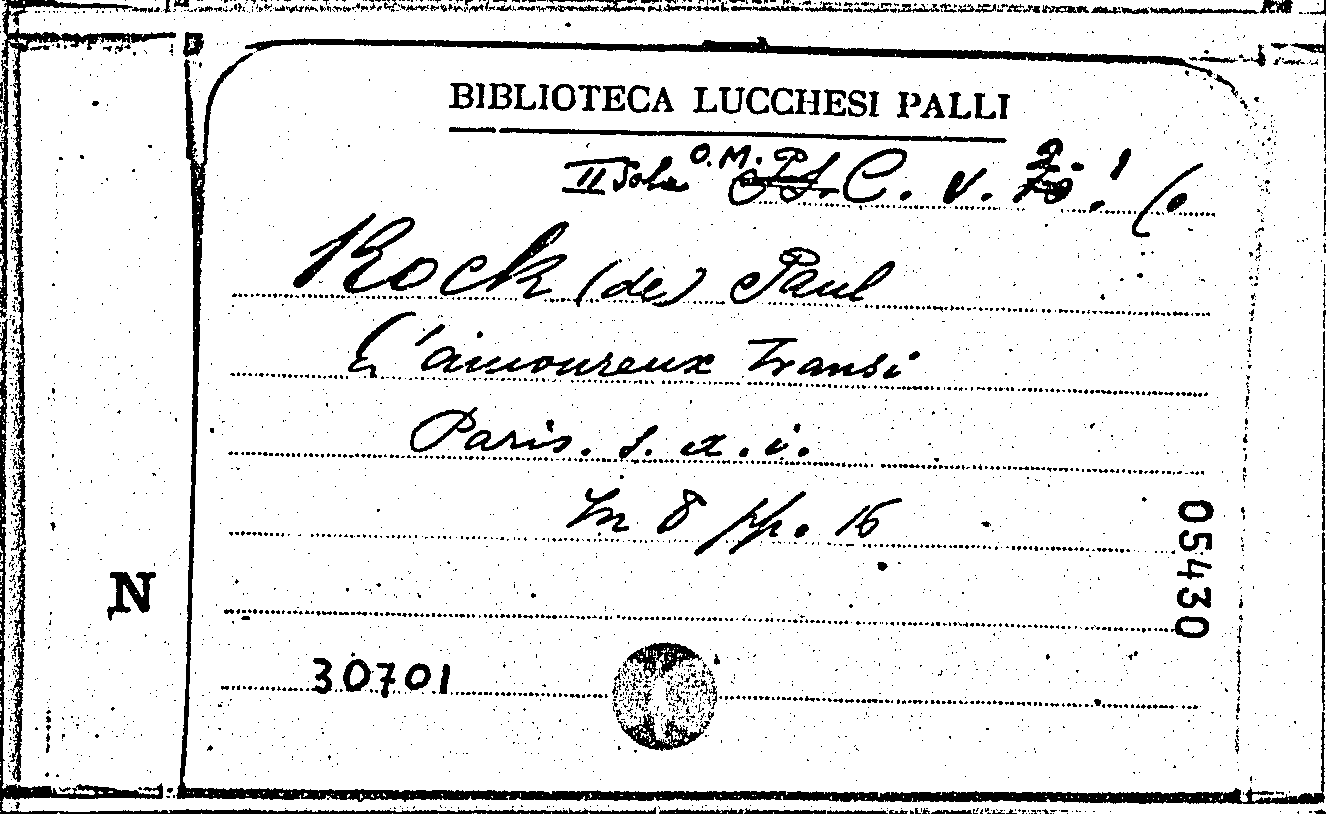 BIBLIOTECA LUCCHESI PALLI
II Sala O.M. P. C. V. 2. ! (.
Kock (de) Paul
L'amoureux transi
Paris. s. a. i.
In 8 pp. 16
N
05430
30701